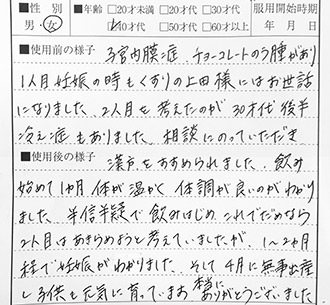 ■性別 ■年齢 □20才未満 □20才代 □30才代 服用開始時期
男・女 ☑40才代 □50才代 □60才以上 年 月 日
■使用前の様子 子宮内膜症、チョコレートのう腫があり
1人目妊娠の時もくすりの上田様にはお世話
になりました。2人目を考えたのが30才代後半
冷え症もありました。相談にのっていただき
■使用後の様子 漢方をすすめられました。飲み
始めて1ヶ月 体が温かく 体調が良いのがわかり
ました。半信半疑で飲みはじめ これでだめなら
2人目はあきらめようと考えていましたが、1〜2ヶ月
程で妊娠がわかりました。そして4月に無事出産
し子供も元気に育っています 本当に
ありがとうございました